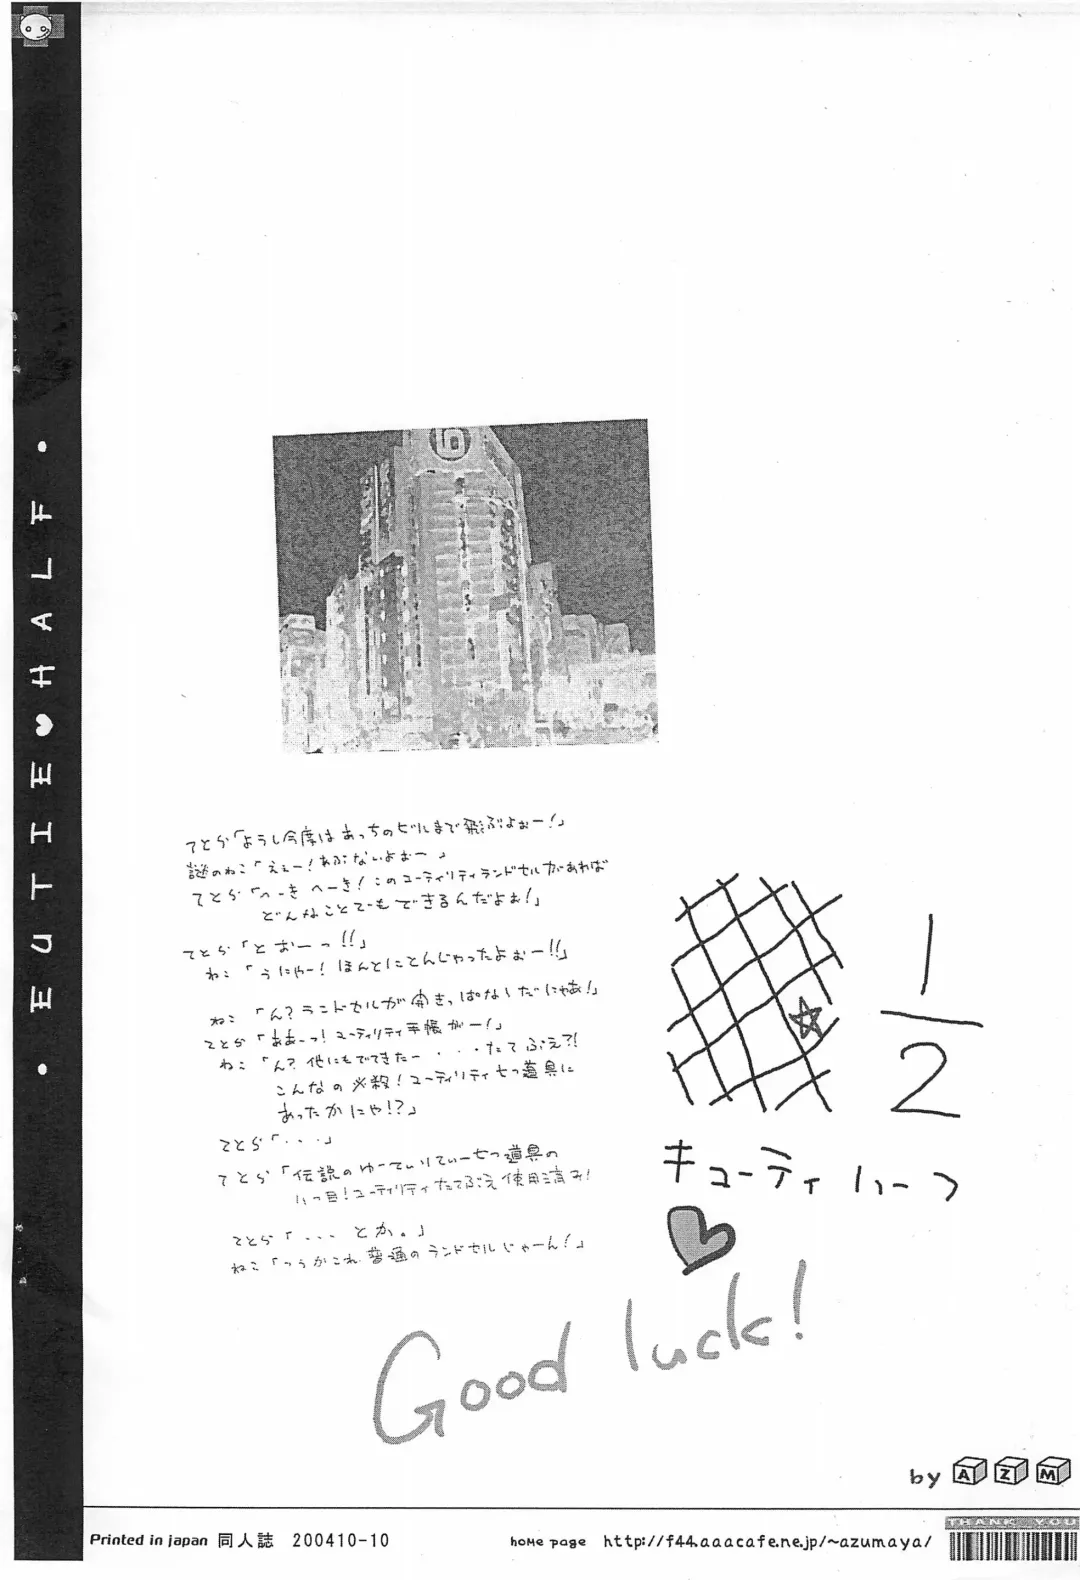 • EUTIE♥HALF •
6
てとら「ようし今度はあっちのビルまで飛ぶよぉー!」
謎のねこ「えぇー!あぶないよぉー」
てとら「へーきへーき!このユーティリティランドセルがあれば
どんなことでもできるんだよぉ!」
てとら「とおーっ!!」
ねこ「うにゃー!ほんとにとんじゃったよぉー!!」
ねこ「ん?ランドセルが開きっぱなしだにゃあ!」
てとら「ああーっ!ユーティリティ手帳がー!」
ねこ「ん?他にもでてきたー・・・たてぶえ?!
こんなの必殺!ユーティリティ七つ道具に
あったかにゃ!?」
てとら「・・・」
てとら「伝説のゆーてぃりてぃー七つ道具の
八つ目!ユーティリティたてぶえ使用済み!
てとら「・・・とか。」
ねこ「つうかこれ普通のランドセルじゃーん!」
1
2
キューティハーフ
Good luck!
by AZM
Printed in japan 同人誌 200410-10
hoMe page http://f44.aaacafe.ne.jp/~azumaya/
THANK YOU